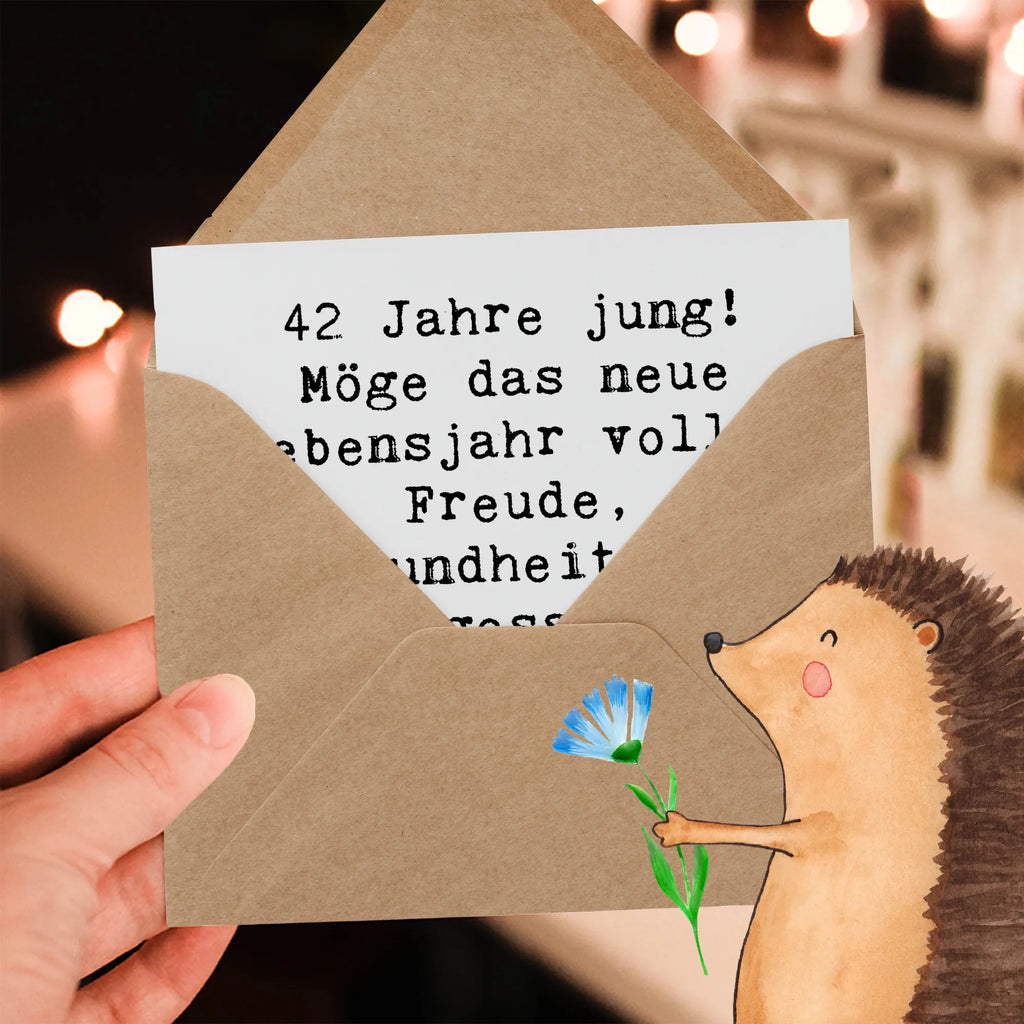 42 Jahre jung!
Möge das neue
ebensjahr voll
Freude,
undheit
gess